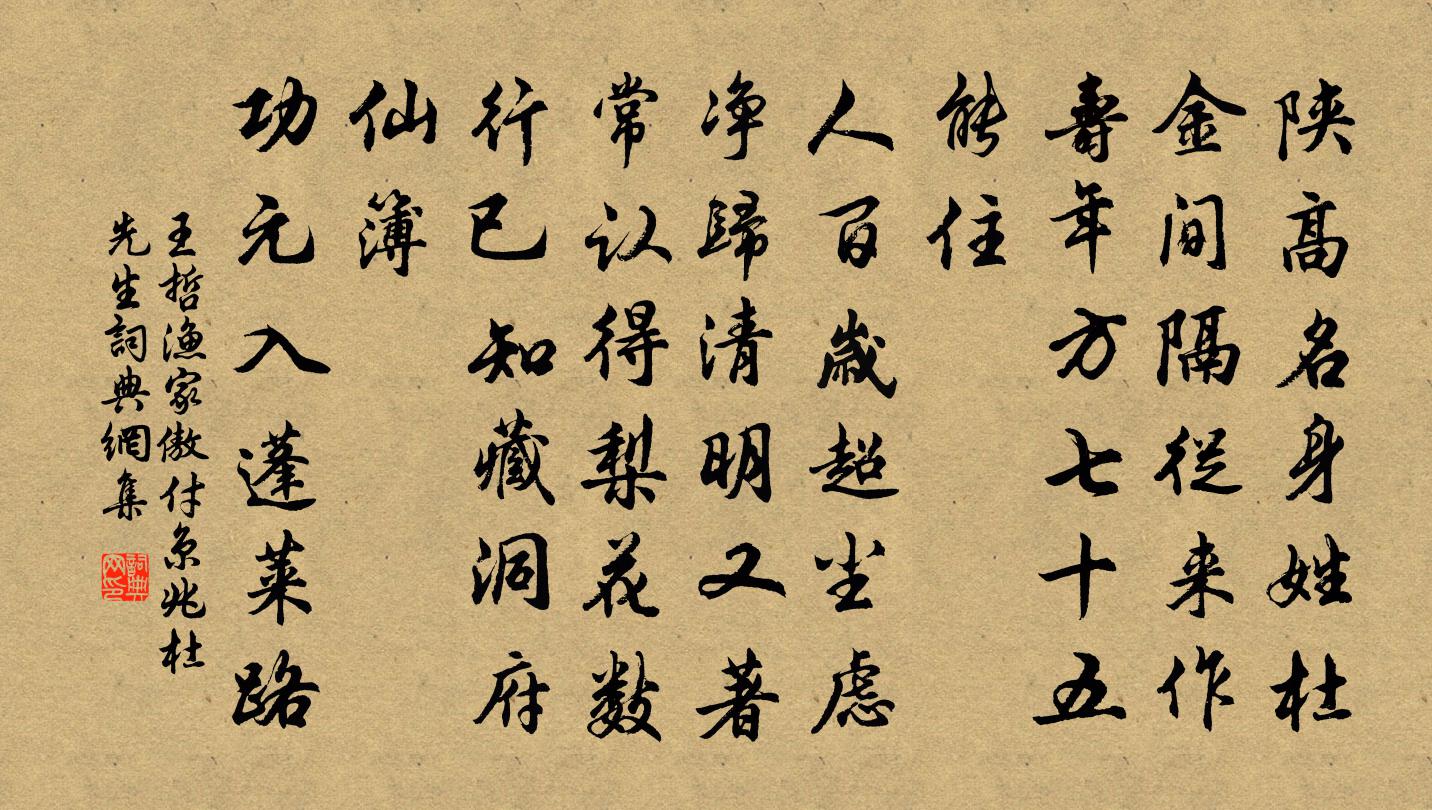 陕高名身姓杜
金间隔従来作
壽年方七十五
能住
人百歳超尘虑
净歸清明又著
常认得梨花数
行已知藏洞府
仙簿
功元入蓬莱路
王哲渔家傲付京兆杜
先生詞典網集
詞典网印